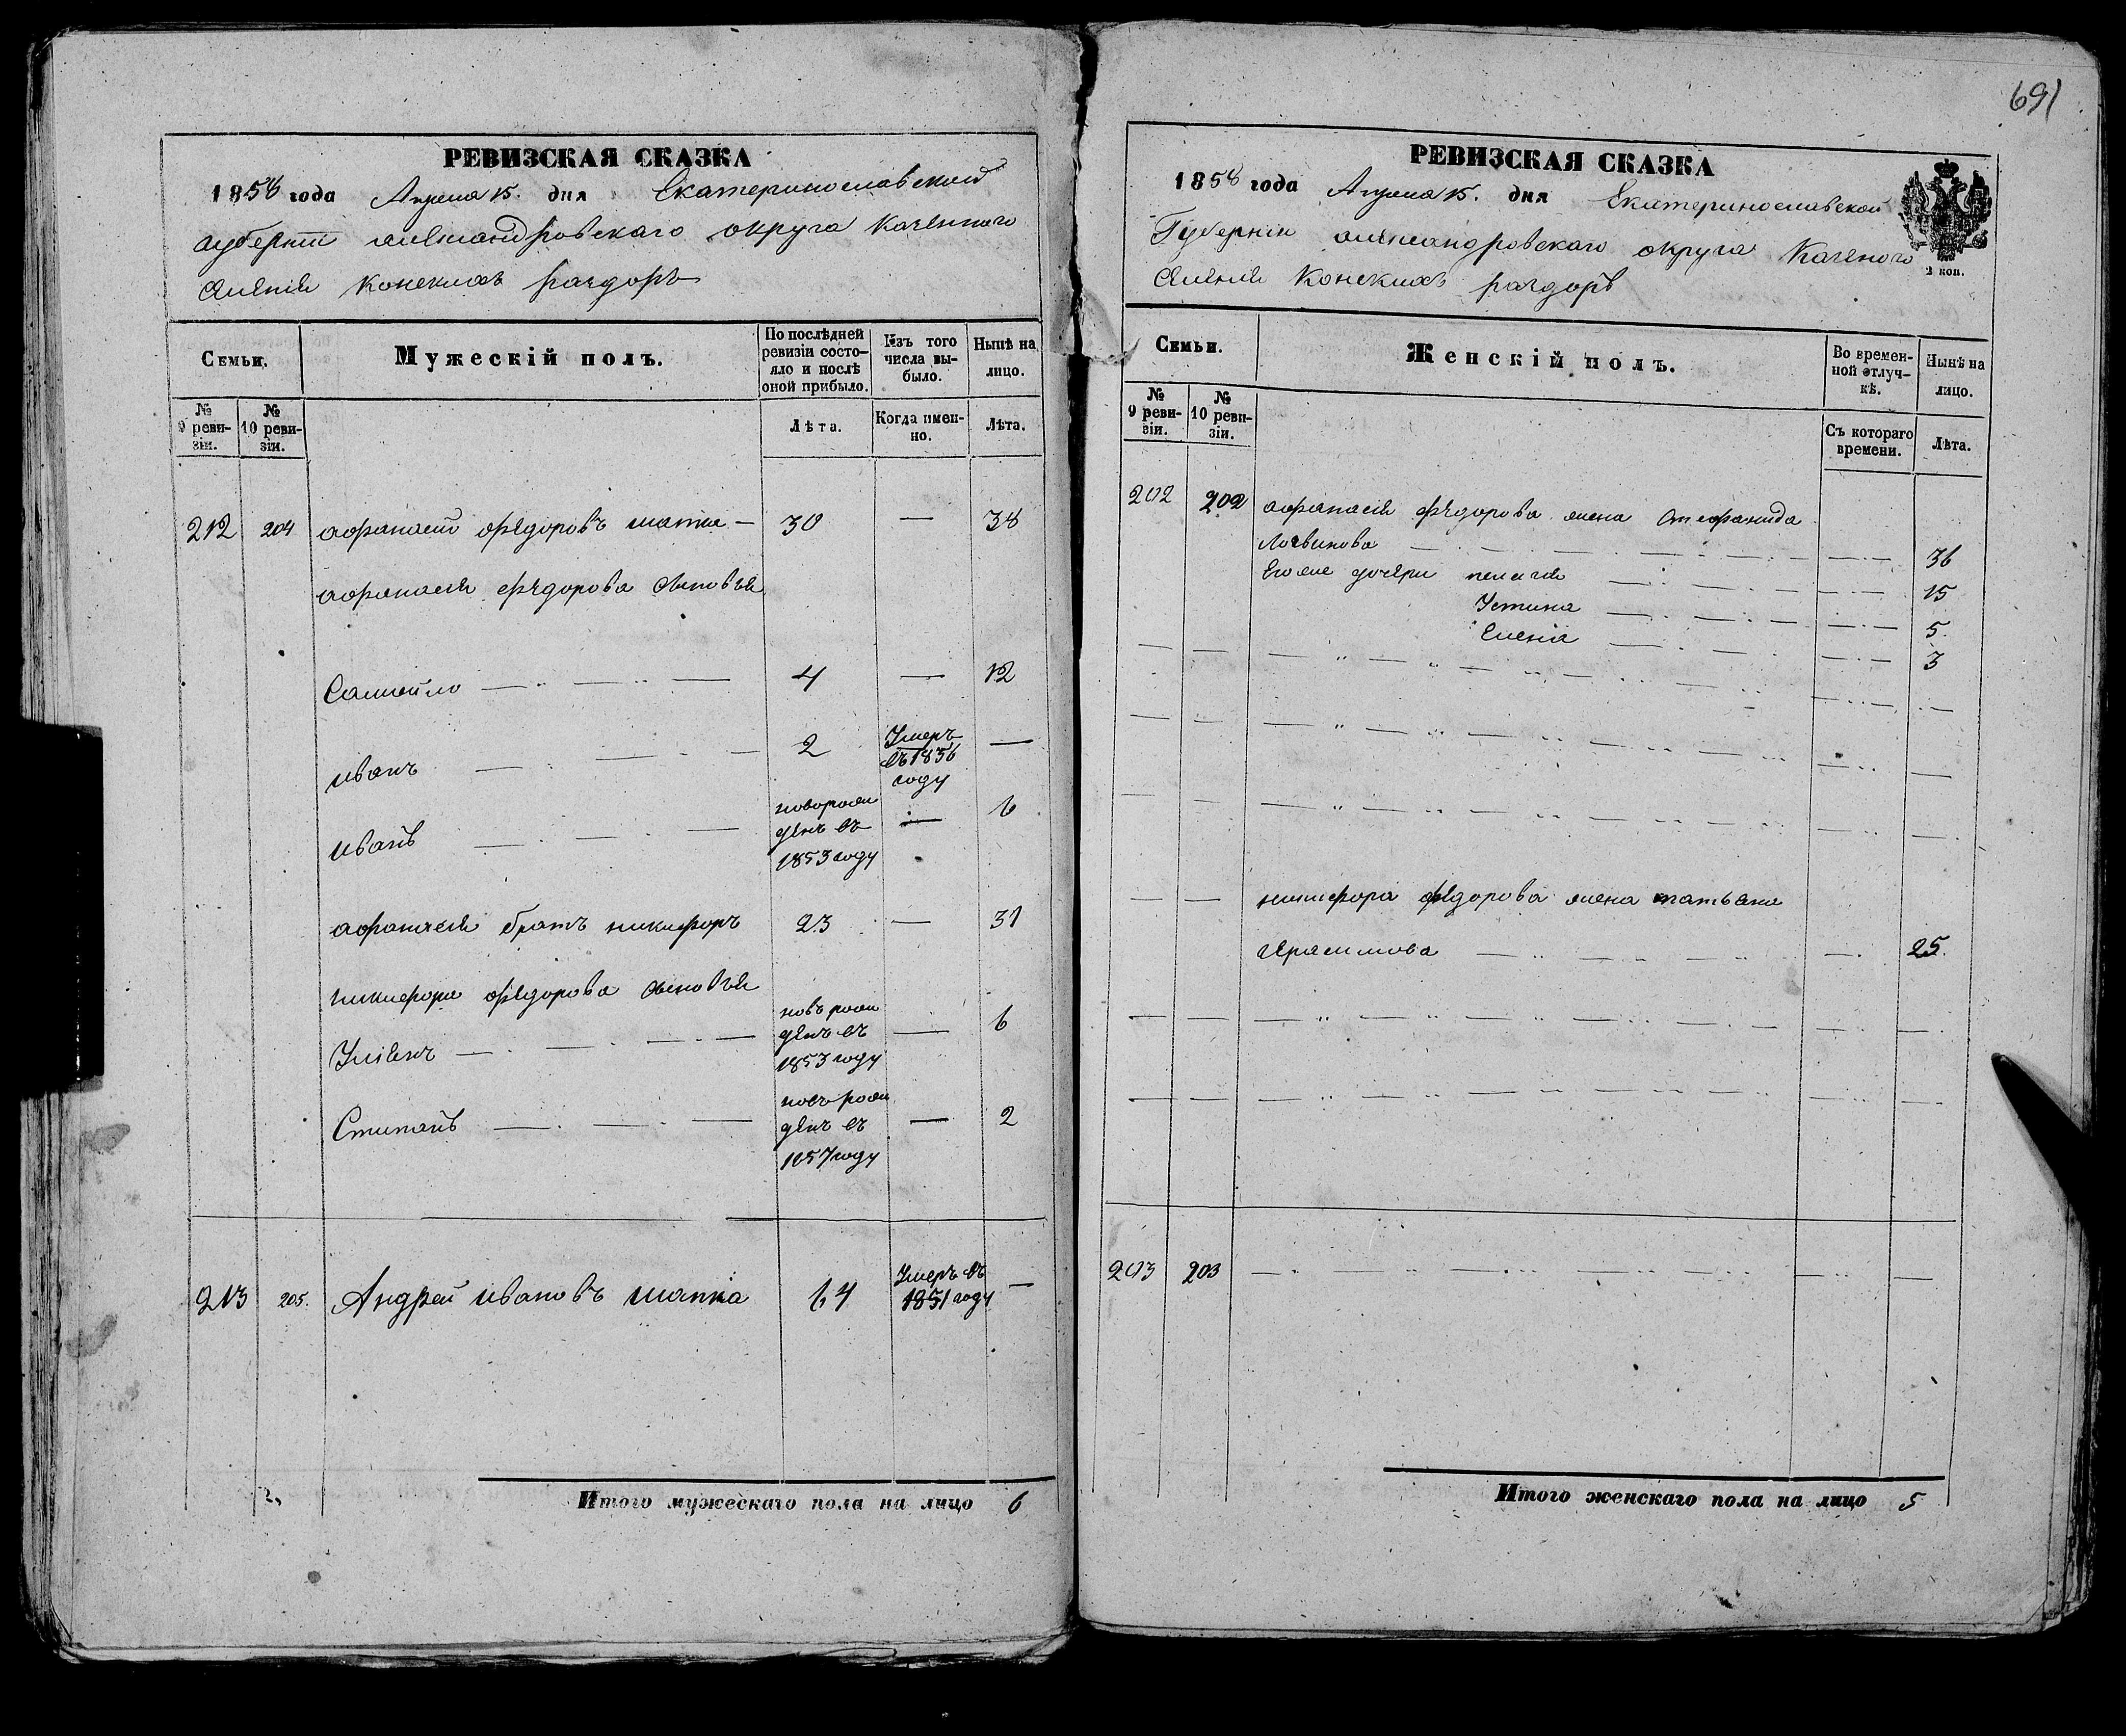 691
РЕВИЗСКАЯ СКАЗКА
1858 года Апреля 15. дня Екатеринославской
губернии александровскаго округа Казенного
селения Конскихъ раздоръ
Семьи.
Мужескій полъ.
По послѣдней ревизіи состояло и послѣ оной прибыло.
Изъ того числа выбыло.
Нынѣ на лицо.
№ 9 ревизіи.
№ 10 ревизіи.
Лѣта.
Когда именно.
Лѣта.
212 204 афанасий фѣдоровъ шапка — 30 — 38
афанасия фѣдорова сыновья
Самойло 4 — 12
иванъ 2 Умеръ въ 1856 году —
иванъ новорожденъ въ 1853 году — 6
афанасия братъ никифоръ 23 — 31
никифора фѣдорова сыновья
Улиянъ новъ рожденъ въ 1853 году — 6
Стипанъ новъ рожденъ въ 1857 году — 2
213 205. Андрей ивановъ шапка 64 Умеръ въ 1851 году —
Итого мужескаго пола на лицо 6
РЕВИЗСКАЯ СКАЗКА
1858 года Апреля 15. дня Екатеринославской
Губернии александровскаго округа Казеного
селения Конскихъ раздоръ
2 коп.
Семьи.
Женскій полъ.
Во временной отлучкѣ.
Нынѣ на лицо.
№ 9 ревизіи.
№ 10 ревизіи.
Съ котораго времени.
Лѣта.
202 202 афанасия фѣдорова жена Стефанида
Логвинова 36
Егоже дочери пелагея 15
Устина 5.
Елена 3
никифора фѣдорова жена татьяна
Герасимова 25.
203 203
Итого женскаго пола на лицо 5